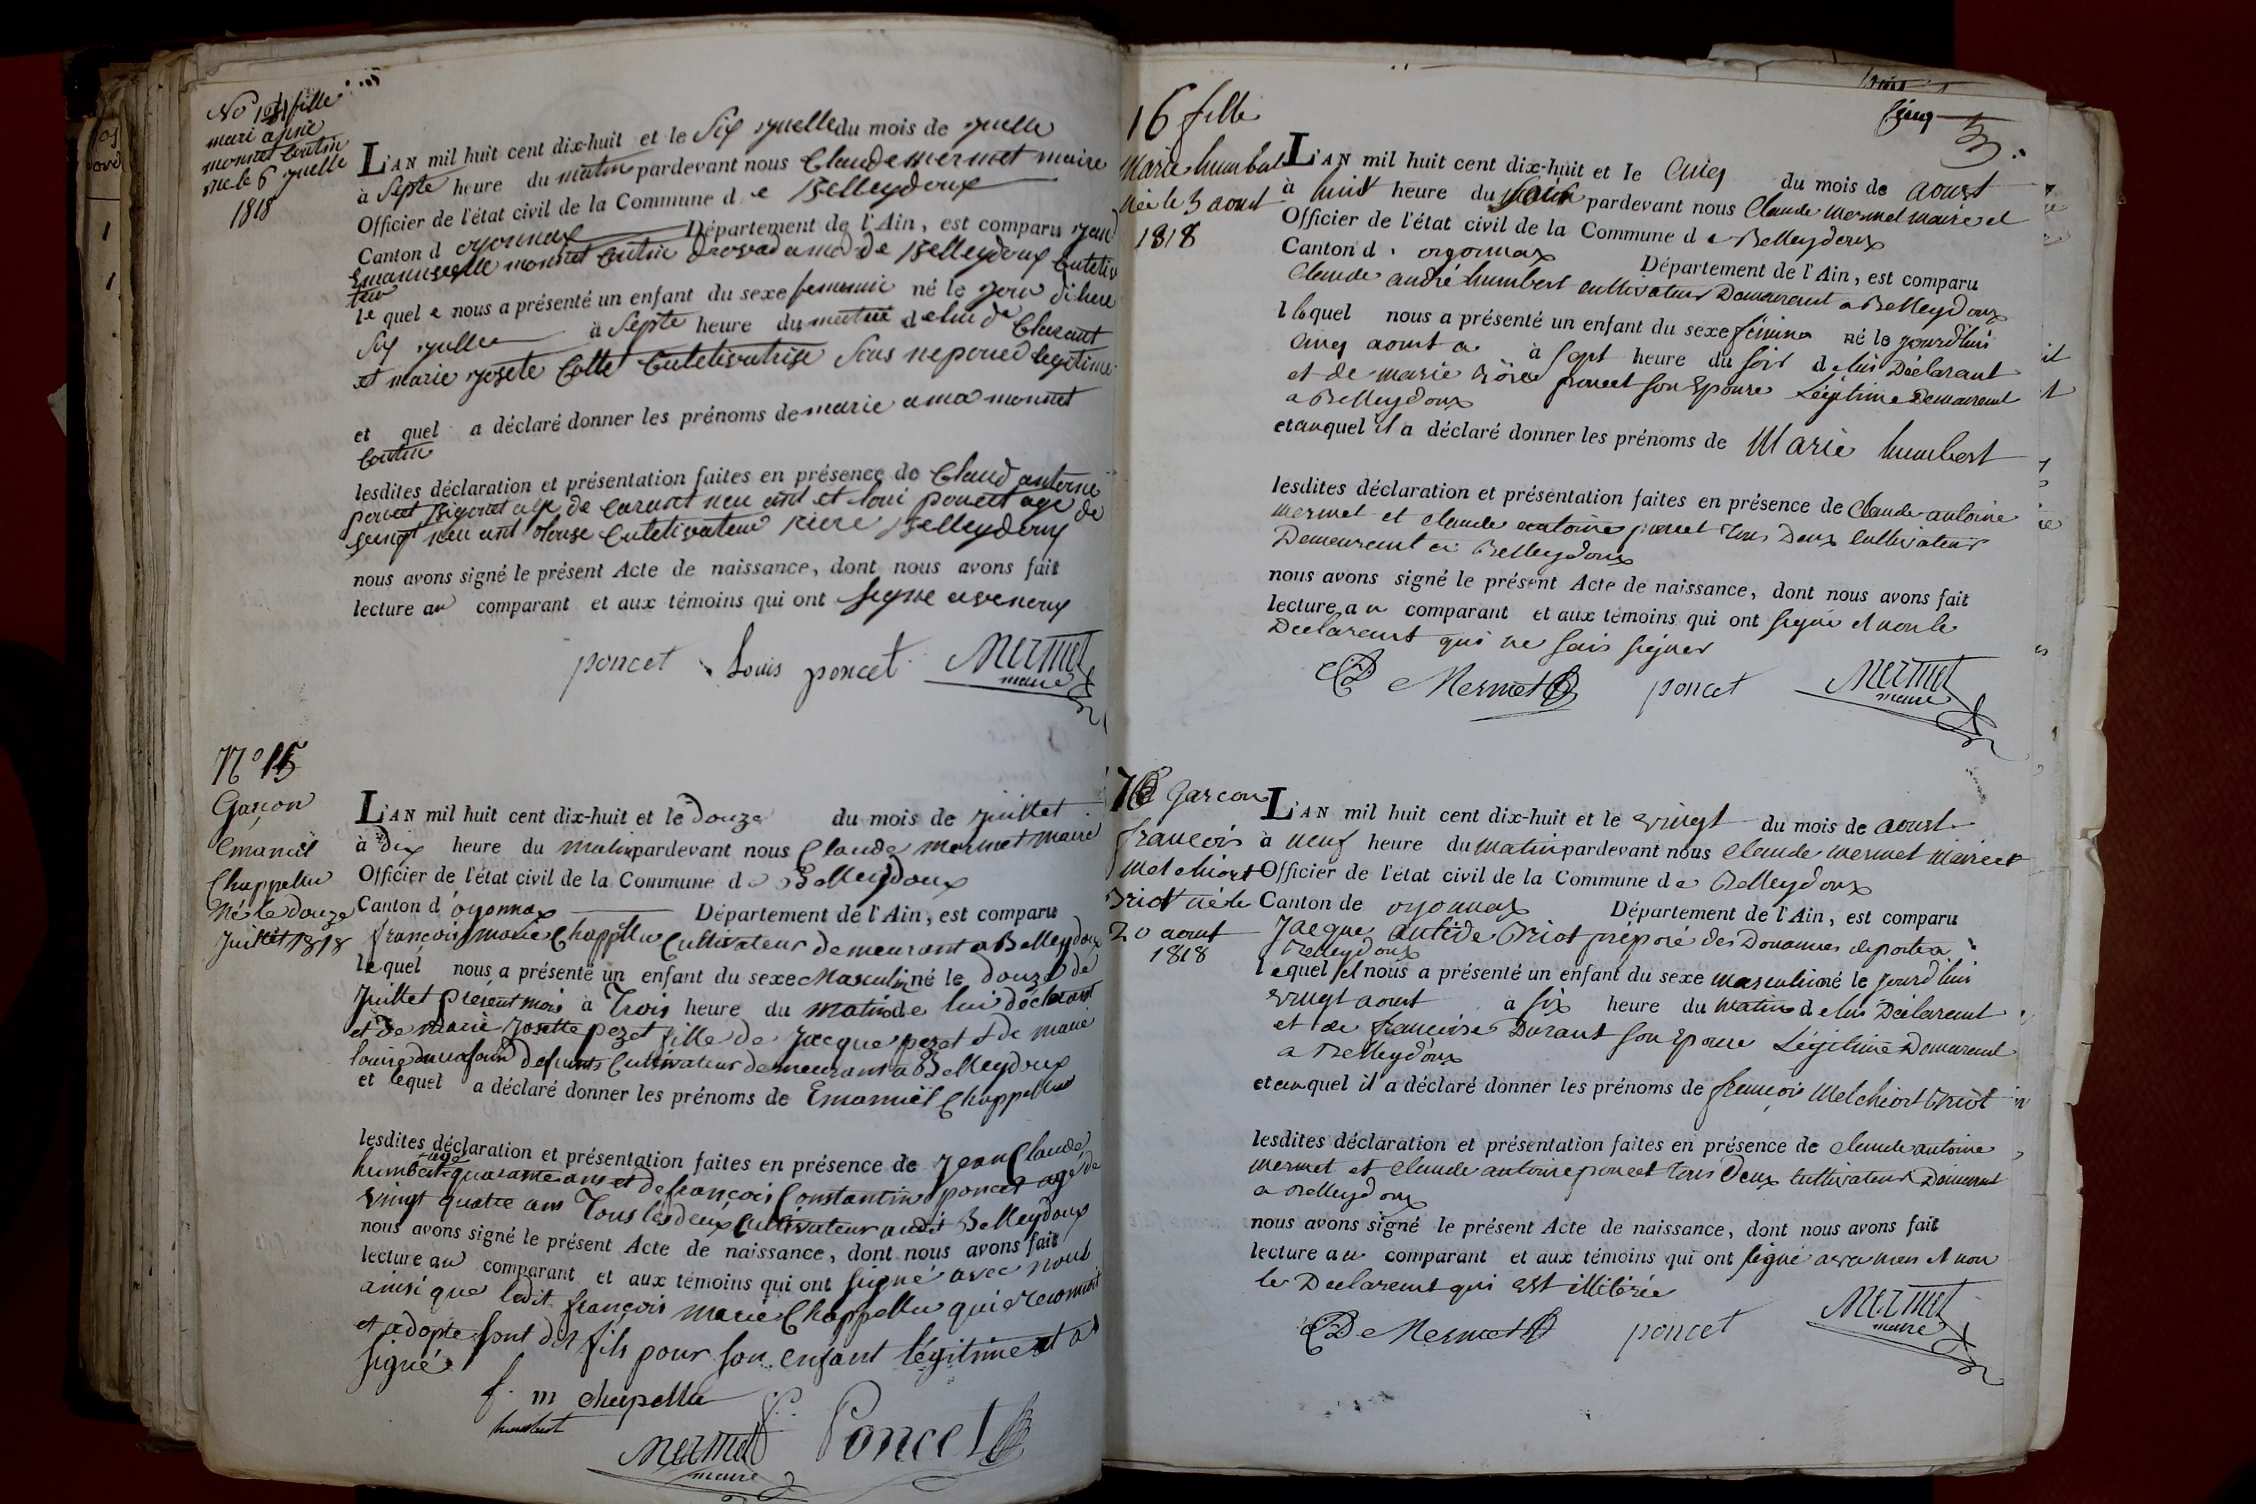 No 14 fille
mari
monnet Coutin
ne le 6 juelle
1818
L'AN mil huit cent dix-huit et le Six juelle du mois de juelle
à Septe heure du matin pardevant nous Claude mermet maire
Officier de l'état civil de la Commune d e Belleydoux
Canton d oyonnax Département de l'Ain, est comparu jean
Emanuelle monnet Coutin de Belleydoux
le quel e nous a présenté un enfant du sexe femenin né le
Six juelle à Septe heure du matin de lui de Clarant
et marie josete Colle legitime
et quel a déclaré donner les prénoms de marie ama monnet
Coutin
lesdites déclaration et présentation faites en présence de Claud antoine
poncet age de carant neu ant et loui poncet age de
neu ant Belleydoux
nous avons signé le présent Acte de naissance, dont nous avons fait
lecture au comparant et aux témoins qui ont signe
poncet Louis poncet Mermet
maire
No 15
Garçon
Emanuël
Chappellu
Né le douze
Juillet 1818
L'AN mil huit cent dix-huit et le douze du mois de juillet
à Dix heure du matin pardevant nous Claude mermet maire
Officier de l'état civil de la Commune d e Belleydoux
Canton d'oyonnax Département de l'Ain, est comparu
françois marie Chappellu Cultivateur demeurant a Belleydoux
lequel nous a présenté un enfant du sexe Masculin né le douze de
Juillet présent mois à Trois heure du matin de lui déclarant
et de marie Josette pezet fille de Jacque pezet et de marie
louise defunts Cultivateur demeurans a Belleydoux
et lequel a déclaré donner les prénoms de Emanuël Chappellu
lesdites déclaration et présentation faites en présence de Jean Claude
humbert agé quarante ans et de françois Constantin poncet agé de
vingt quatre ans Tous les deux Cultivateur audit Belleydoux
nous avons signé le présent Acte de naissance, dont nous avons fait
lecture au comparant et aux témoins qui ont signé avec nous
ainsi que ledit françois marie Chappellu qui reconnait
et adopte sont dit fils pour son enfant légitime et a
signé
f. m chapellu
humbert
Mermet Poncet
maire
5
16 fille
Marie humbert
Née le 5 aoust
1818
L'AN mil huit cent dix-huit et le Cinq du mois de aoust
à huit heure du soir pardevant nous Claude mermet maire et
Officier de l'état civil de la Commune d e Belleydoux
Canton d oyonnax Département de l'Ain, est comparu
Claude andré humbert cultivateur Demeurant a Belleydoux
lequel nous a présenté un enfant du sexe féminin né le jourd'hui
Cinq aoust à sept heure du soir de lui Déclarant
et de marie poncet son Epouse Légitime Demeurant
a Belleydoux
et auquel il a déclaré donner les prénoms de Marie humbert
lesdites déclaration et présentation faites en présence de Claude antoine
mermet et claude antoine poncet tous Deux cultivateur
Demeurant a Belleydoux
nous avons signé le présent Acte de naissance, dont nous avons fait
lecture a u comparant et aux témoins qui ont signé et non le
Declarant qui ne sais signer
Mermet poncet Mermet
maire
Garcon
françois
Melchiort
Briot né le
20 aoust
1818
L'AN mil huit cent dix-huit et le vingt du mois de aoust
à neuf heure du matin pardevant nous Claude mermet maire et
Officier de l'état civil de la Commune d e Belleydoux
Canton de oyonnax Département de l'Ain, est comparu
Jacque antide Briot préposé des Douannes de poste a
Belleydoux
lequel il nous a présenté un enfant du sexe masculin né le jourd'hui
vingt aoust à six heure du matin de lui Déclarant
et de françoise Durant son Epouse Légitime Demeurant
a Belleydoux
et auquel il a déclaré donner les prénoms de françois Melchiort Briot
lesdites déclaration et présentation faites en présence de claude antoine
mermet et claude antoine poncet tous Deux cultivateur Demeurant
a Belleydoux
nous avons signé le présent Acte de naissance, dont nous avons fait
lecture au comparant et aux témoins qui ont signé et non
le Declarant qui est illitérée
Mermet poncet Mermet
maire